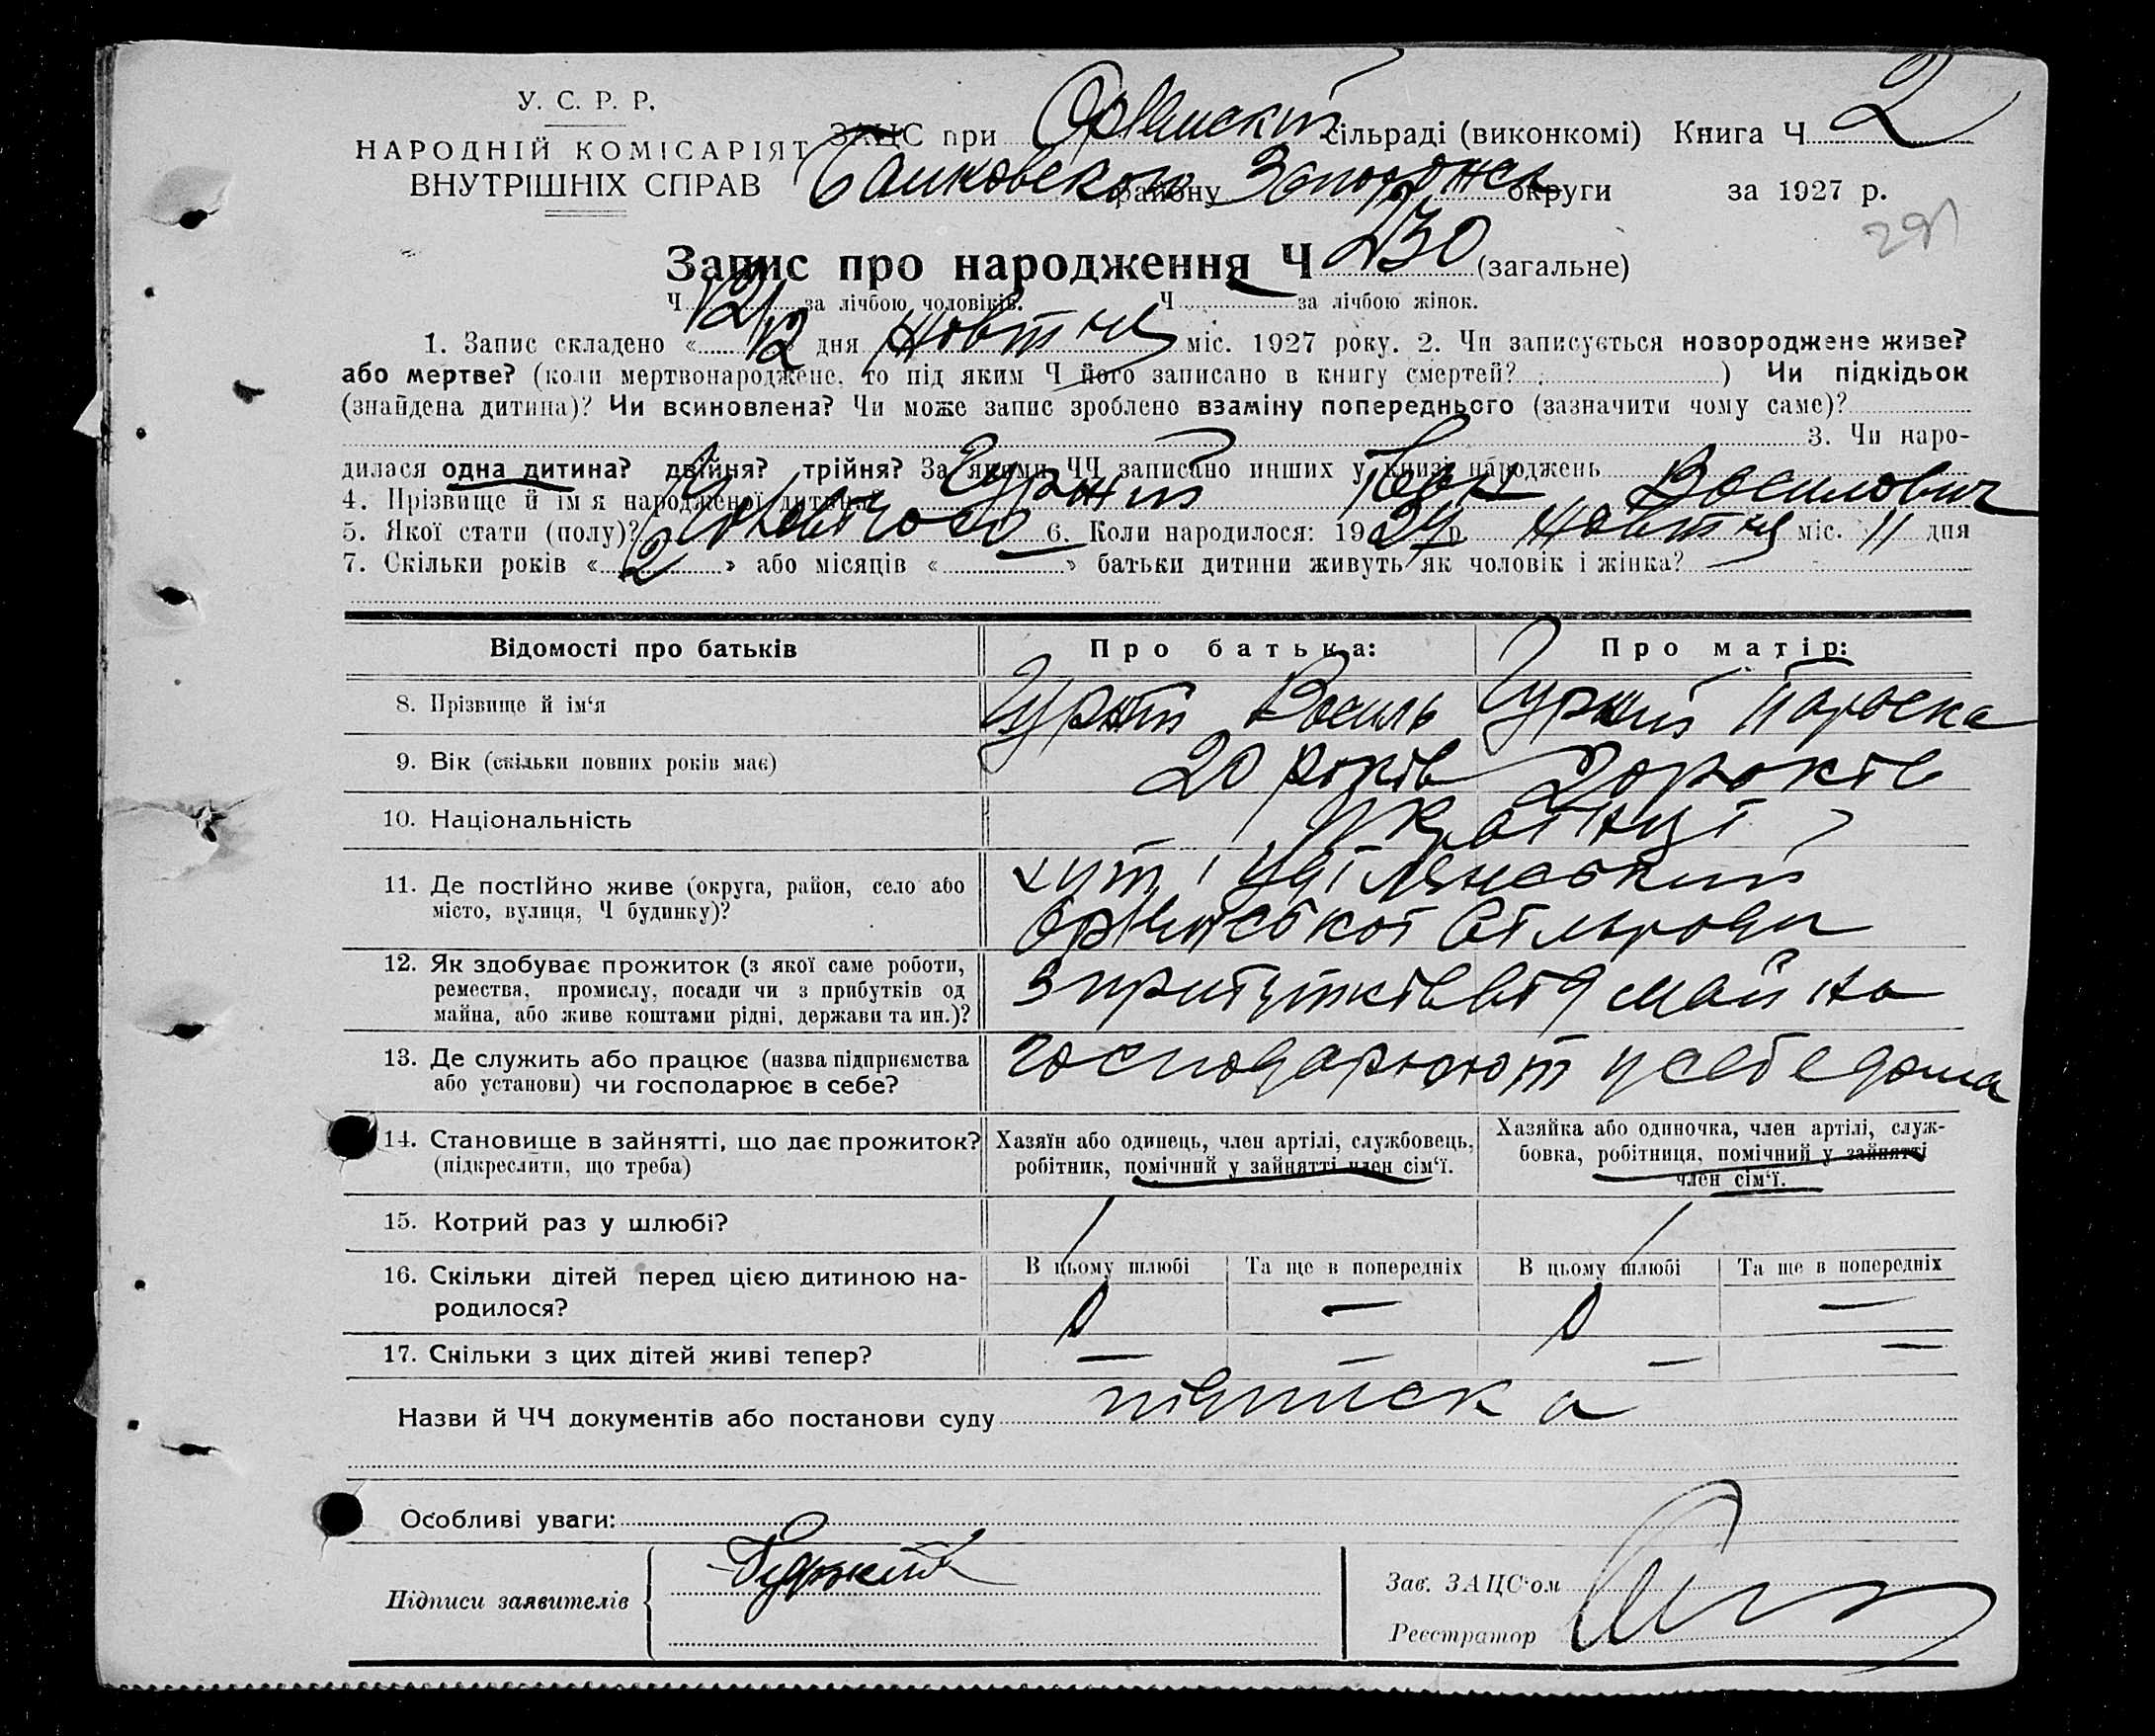 У. С. Р. Р.
НАРОДНІЙ КОМІСАРІЯТ
ВНУТРІШНІХ СПРАВ
ЗАЦС при сільраді (виконкомі) Книга Ч 2
району округи за 1927 р.
Запис про народження Ч 230 (загальне)
Ч 121 за лічбою чоловіків. Ч — за лічбою жінок.
1. Запис складено « 12 дня Жовтня міс. 1927 року. 2. Чи записується новороджене живе?
або мертве? (коли мертвонароджене, то під яким Ч його записано в книгу смертей? ) Чи підкідьок
(знайдена дитина)? Чи всиновлена? Чи може запис зроблено взаміну попереднього (зазначити чому саме)?
3. Чи наро-
дилася одна дитина? двійня? трійня? За якими ЧЧ записано инших у книзі народжень
4. Прізвище й ім'я народженої дитини Іван Василович
5. Якої стати (полу)? Чоловічого 6. Коли народилося: 1927 р. Жовтня міс. 11 дня
7. Скільки років « 2 » або місяців « » батьки дитини живуть як чоловік і жінка?
Відомості про батьків Про батька: Про матір:
8. Прізвище й ім'я Василь Параска
9. Вік (скільки повних років має) 20 років 20 років
10. Національність Українці
11. Де постійно живе (округа, район, село або хут.
місто, вулиця, Ч будинку)? Сільради
12. Як здобуває прожиток (з якої саме роботи, з прибутків від майна
ремества, промислу, посади чи з прибутків од
майна, або живе коштами рідні, держави та ин.)?
13. Де служить або працює (назва підприємства господарюют у себе дома
або установи) чи господарює в себе?
14. Становище в зайнятті, що дає прожиток? Хазяїн або одинець, член артілі, службовець, Хазяйка або одиночка, член артілі, служ-
(підкреслити, що треба) робітник, помічний у зайнятті член сім'ї. бовка, робітниця, помічний у зайнятті
член сім'ї.
15. Котрий раз у шлюбі? 1 1
16. Скільки дітей перед цією дитиною на- В цьому шлюбі Та ще в попередніх В цьому шлюбі Та ще в попередніх
родилося? 0 — 0 —
17. Скільки з цих дітей живі тепер? — — — —
Назви й ЧЧ документів або постанови суду підписка
Особливі уваги:
Підписи заявителів
Зав. ЗАЦС'ом
Реєстратор